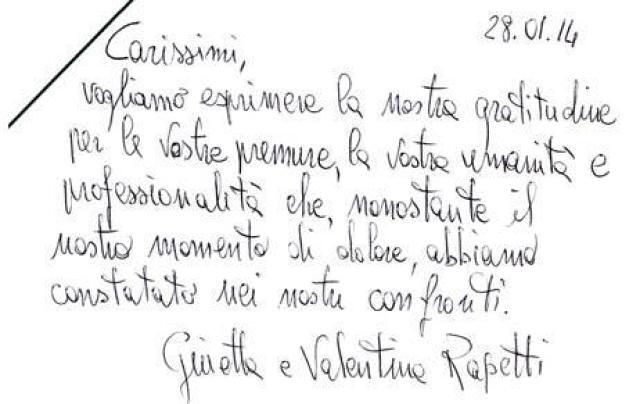 28.01.14
Carissimi,
vogliamo esprimere la nostra gratitudine
per le vostre premure, la vostra umanità e
professionalità che, nonostante il
nostro momento di dolore, abbiamo
constatato nei nostri confronti.
Giuietta e Valentina Rapetti